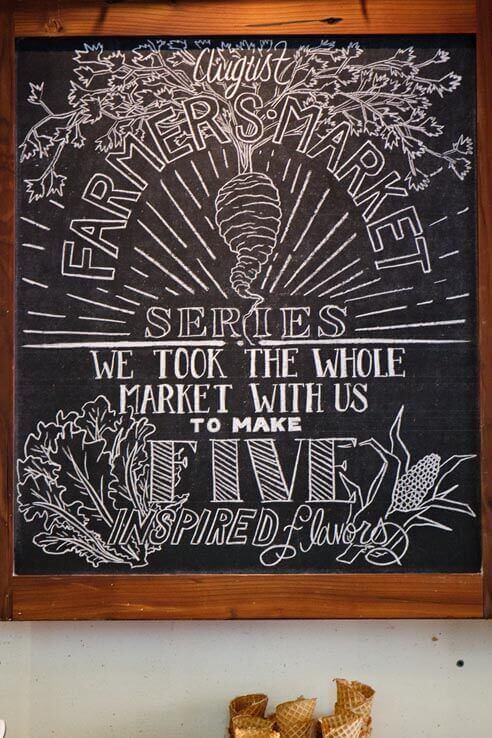 August
FARMERS·MARKET
SERIES
WE TOOK THE WHOLE
MARKET WITH US
TO MAKE
FIVE
INSPIRED flavors